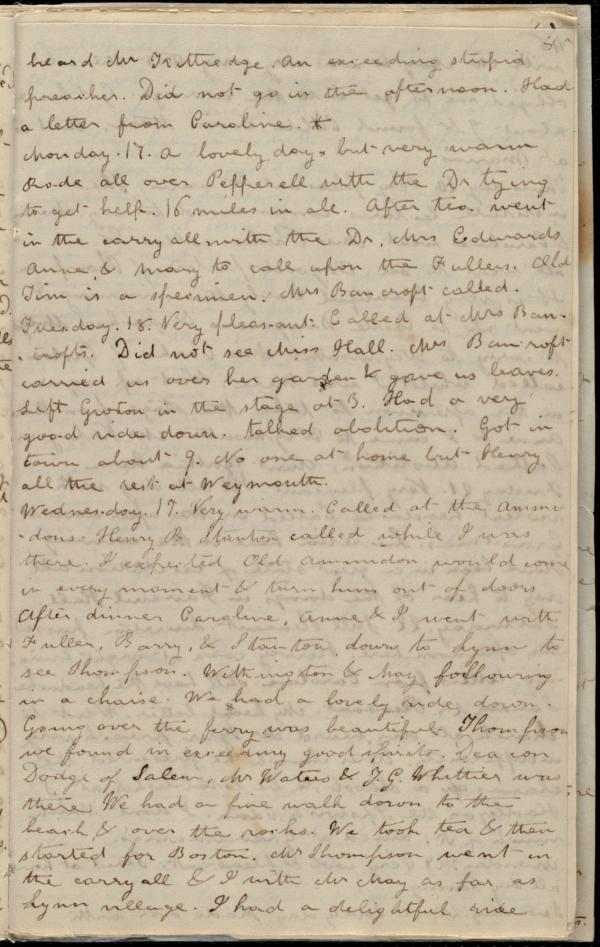 heard Mr Kittredge an exceeding stupid
preacher. Did not go in the afternoon. Had
a letter from Caroline. *
Monday. 17. A lovely day, but very warm
Rode all over Pepperell with the Dr trying
to get help. 16 miles in all. After tea. went
in the carryall with the Dr, Mrs Edwards
Anne, & Mary to call upon the Fullers. Old
Tim is a specimen. Mrs Bancroft called.
Tuesday. 18. Very pleasant. Called at Mrs Ban-
-crofts. Did not see Miss Hall. Mrs Bancroft
carried us over her garden & gave us leaves.
Left Groton in the stage at 3. Had a very
good ride down. talked abolition. Got in
town about 9. No one at home but Henry.
all the rest at Weymouth.
Wednesday. 19. Very warm. Called at the Ammi-
-dons. Henry B Stanton called while I was
there. I expected Old Ammidon would come
in every moment & turn him out of doors
After dinner Caroline, Anne & I went with
Fuller, Barry, & Stanton down to Lynn to
see Thompson. Withington & May following
in a chaise. We had a lovely ride down.
Going over the ferry was beautiful. Thompson
we found in exceeding good spirits. Deacon
Dodge of Salem, Mr Waters & J. G. Whittier was
there We had a fine walk down to the
beach & over the rocks. We took tea & then
started for Boston. Mr Thompson went in
the carryall & I with Mr May as far as
Lynn village. I had a delightful ride